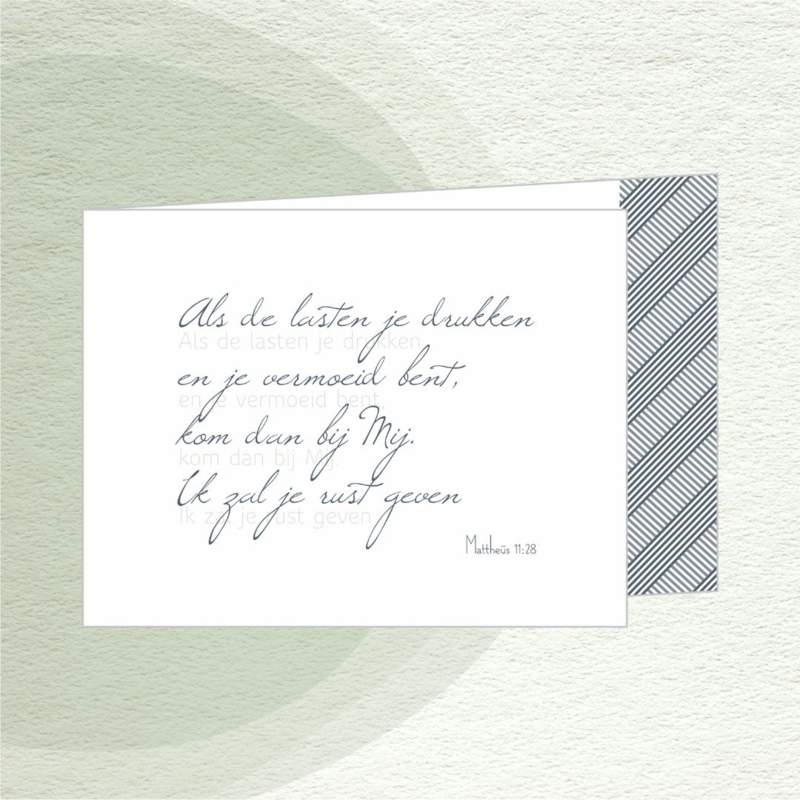 Als de lasten je drukken
Als de lasten je drukken
en je vermoeid bent,
en je vermoeid bent,
kom dan bij Mij.
kom dan bij Mij.
Ik zal je rust geven
Ik zal je rust geven
Mattheüs 11:28